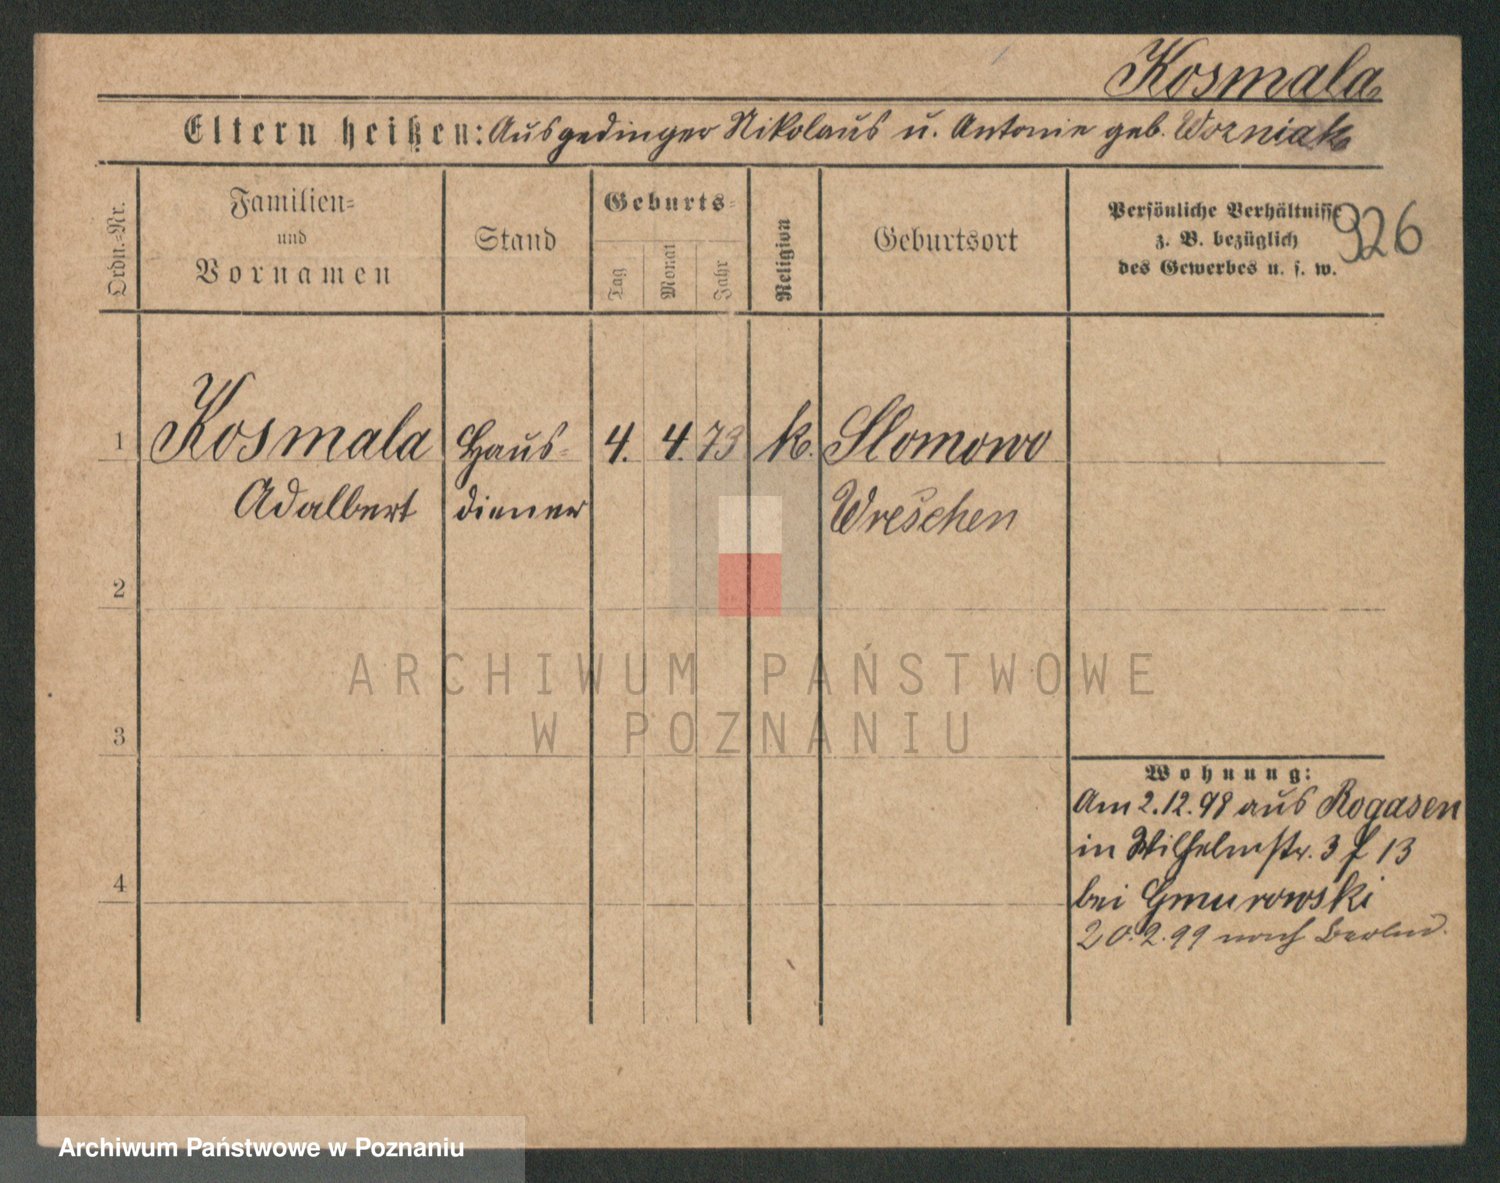 Kosmala
Eltern heißen: Ausgedinger Nikolaus u. Antonie geb. Wozniak
Ordn.=Nr.
Familien=
und
Vornamen
Stand
Geburts=
Tag
Monat
Jahr
Religion
Geburtsort
Persönliche Verhältnisse
z. B. bezüglich
des Gewerbes u. s. w.
926
1 Kosmala Haus= 4. 4. 73 k. Slomowo
Adalbert diener Wreschen
2
3
4
Wohnung:
Am 2.12.98 aus Rogasen
in Wilhelmstr. 3 f 13
bei Gmurowski
20.2.99 nach Berlin.
ARCHIWUM PAŃSTWOWE
W POZNANIU
Archiwum Państwowe w Poznaniu